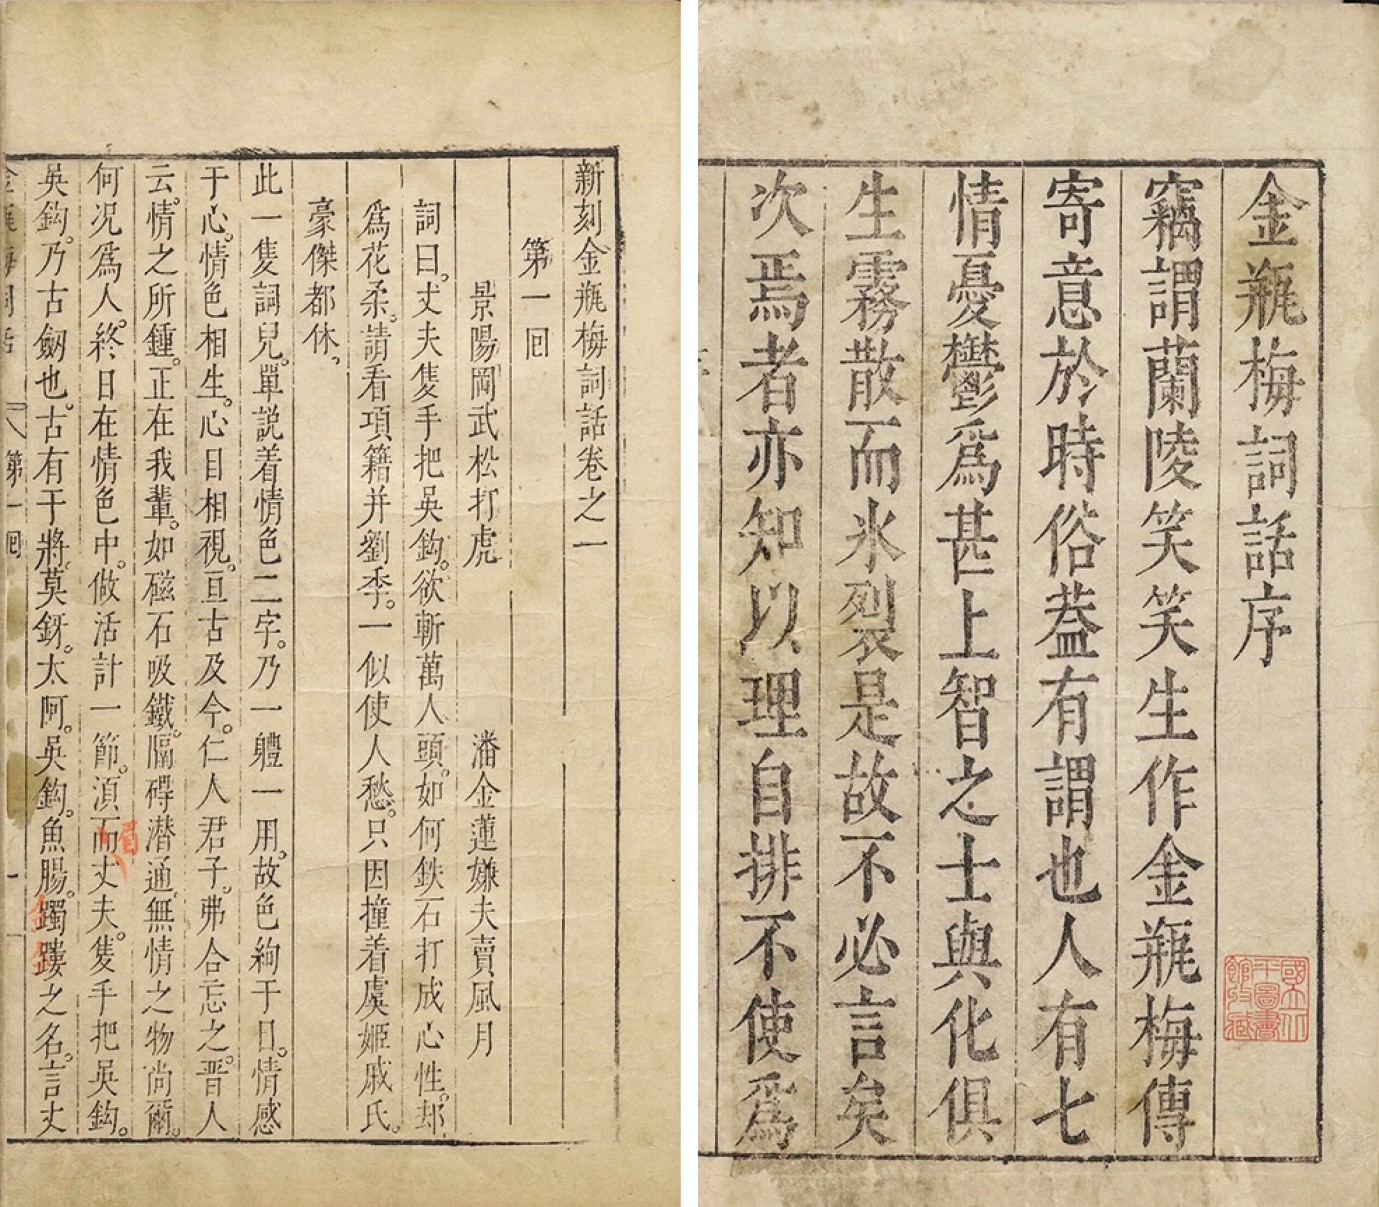 金瓶梅詞話序
竊謂蘭陵笑笑生作金瓶梅傳
寄意於時俗葢有謂也人有七
情憂鬱爲甚上智之士與化俱
生霧散而氷裂是故不必言矣
次焉者亦知以理自排不使爲
國立北平圖書館收藏
新刻金瓶梅詞話卷之一
第一回
景陽岡武松打虎　潘金蓮嫌夫賣風月
詞曰。丈夫隻手把吳鈎。欲斬萬人頭。如何鉄石打成心性。却
爲花柔。請看項籍并劉季。一似使人愁。只因撞着虞姬戚氏。
豪傑都休、
此一隻詞兒。單説着情色二字。乃一軆一用。故色絢于目。情感
于心。情色相生。心目相視。亘古及今。仁人君子。弗合忘之。晋人
云。情之所鍾。正在我輩。如磁石吸鐵。隔碍潜通。無情之物尚爾。
何况爲人。終日在情色中。做活計一節。湏而丈夫隻手把吳鈎。
吳鈎。乃古劔也。古有干將。莫釾。太阿。吳鈎。魚腸。躅䠥之名。言丈
金瓶梅詞話　第一回　一